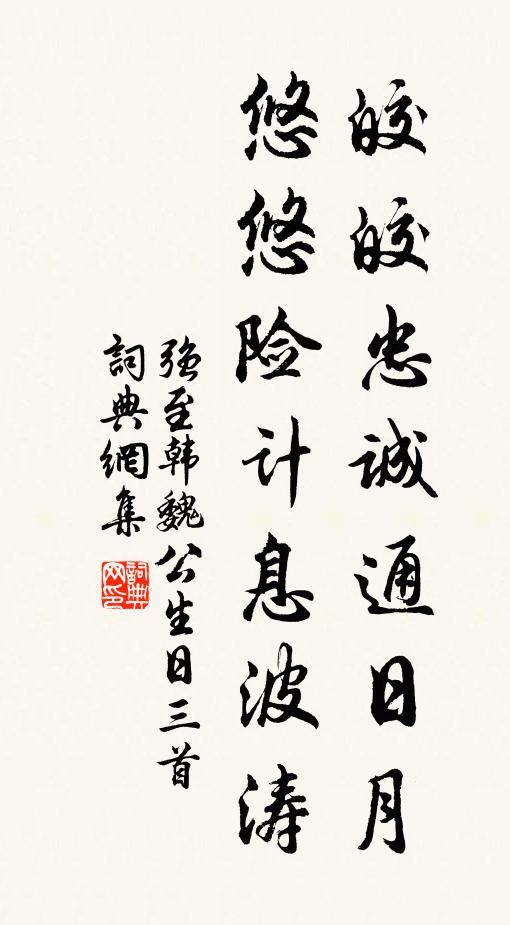 皎皎忠誠通日月
悠悠险计息波涛
强至韩魏公生日三首
詞典網集
詞典网印